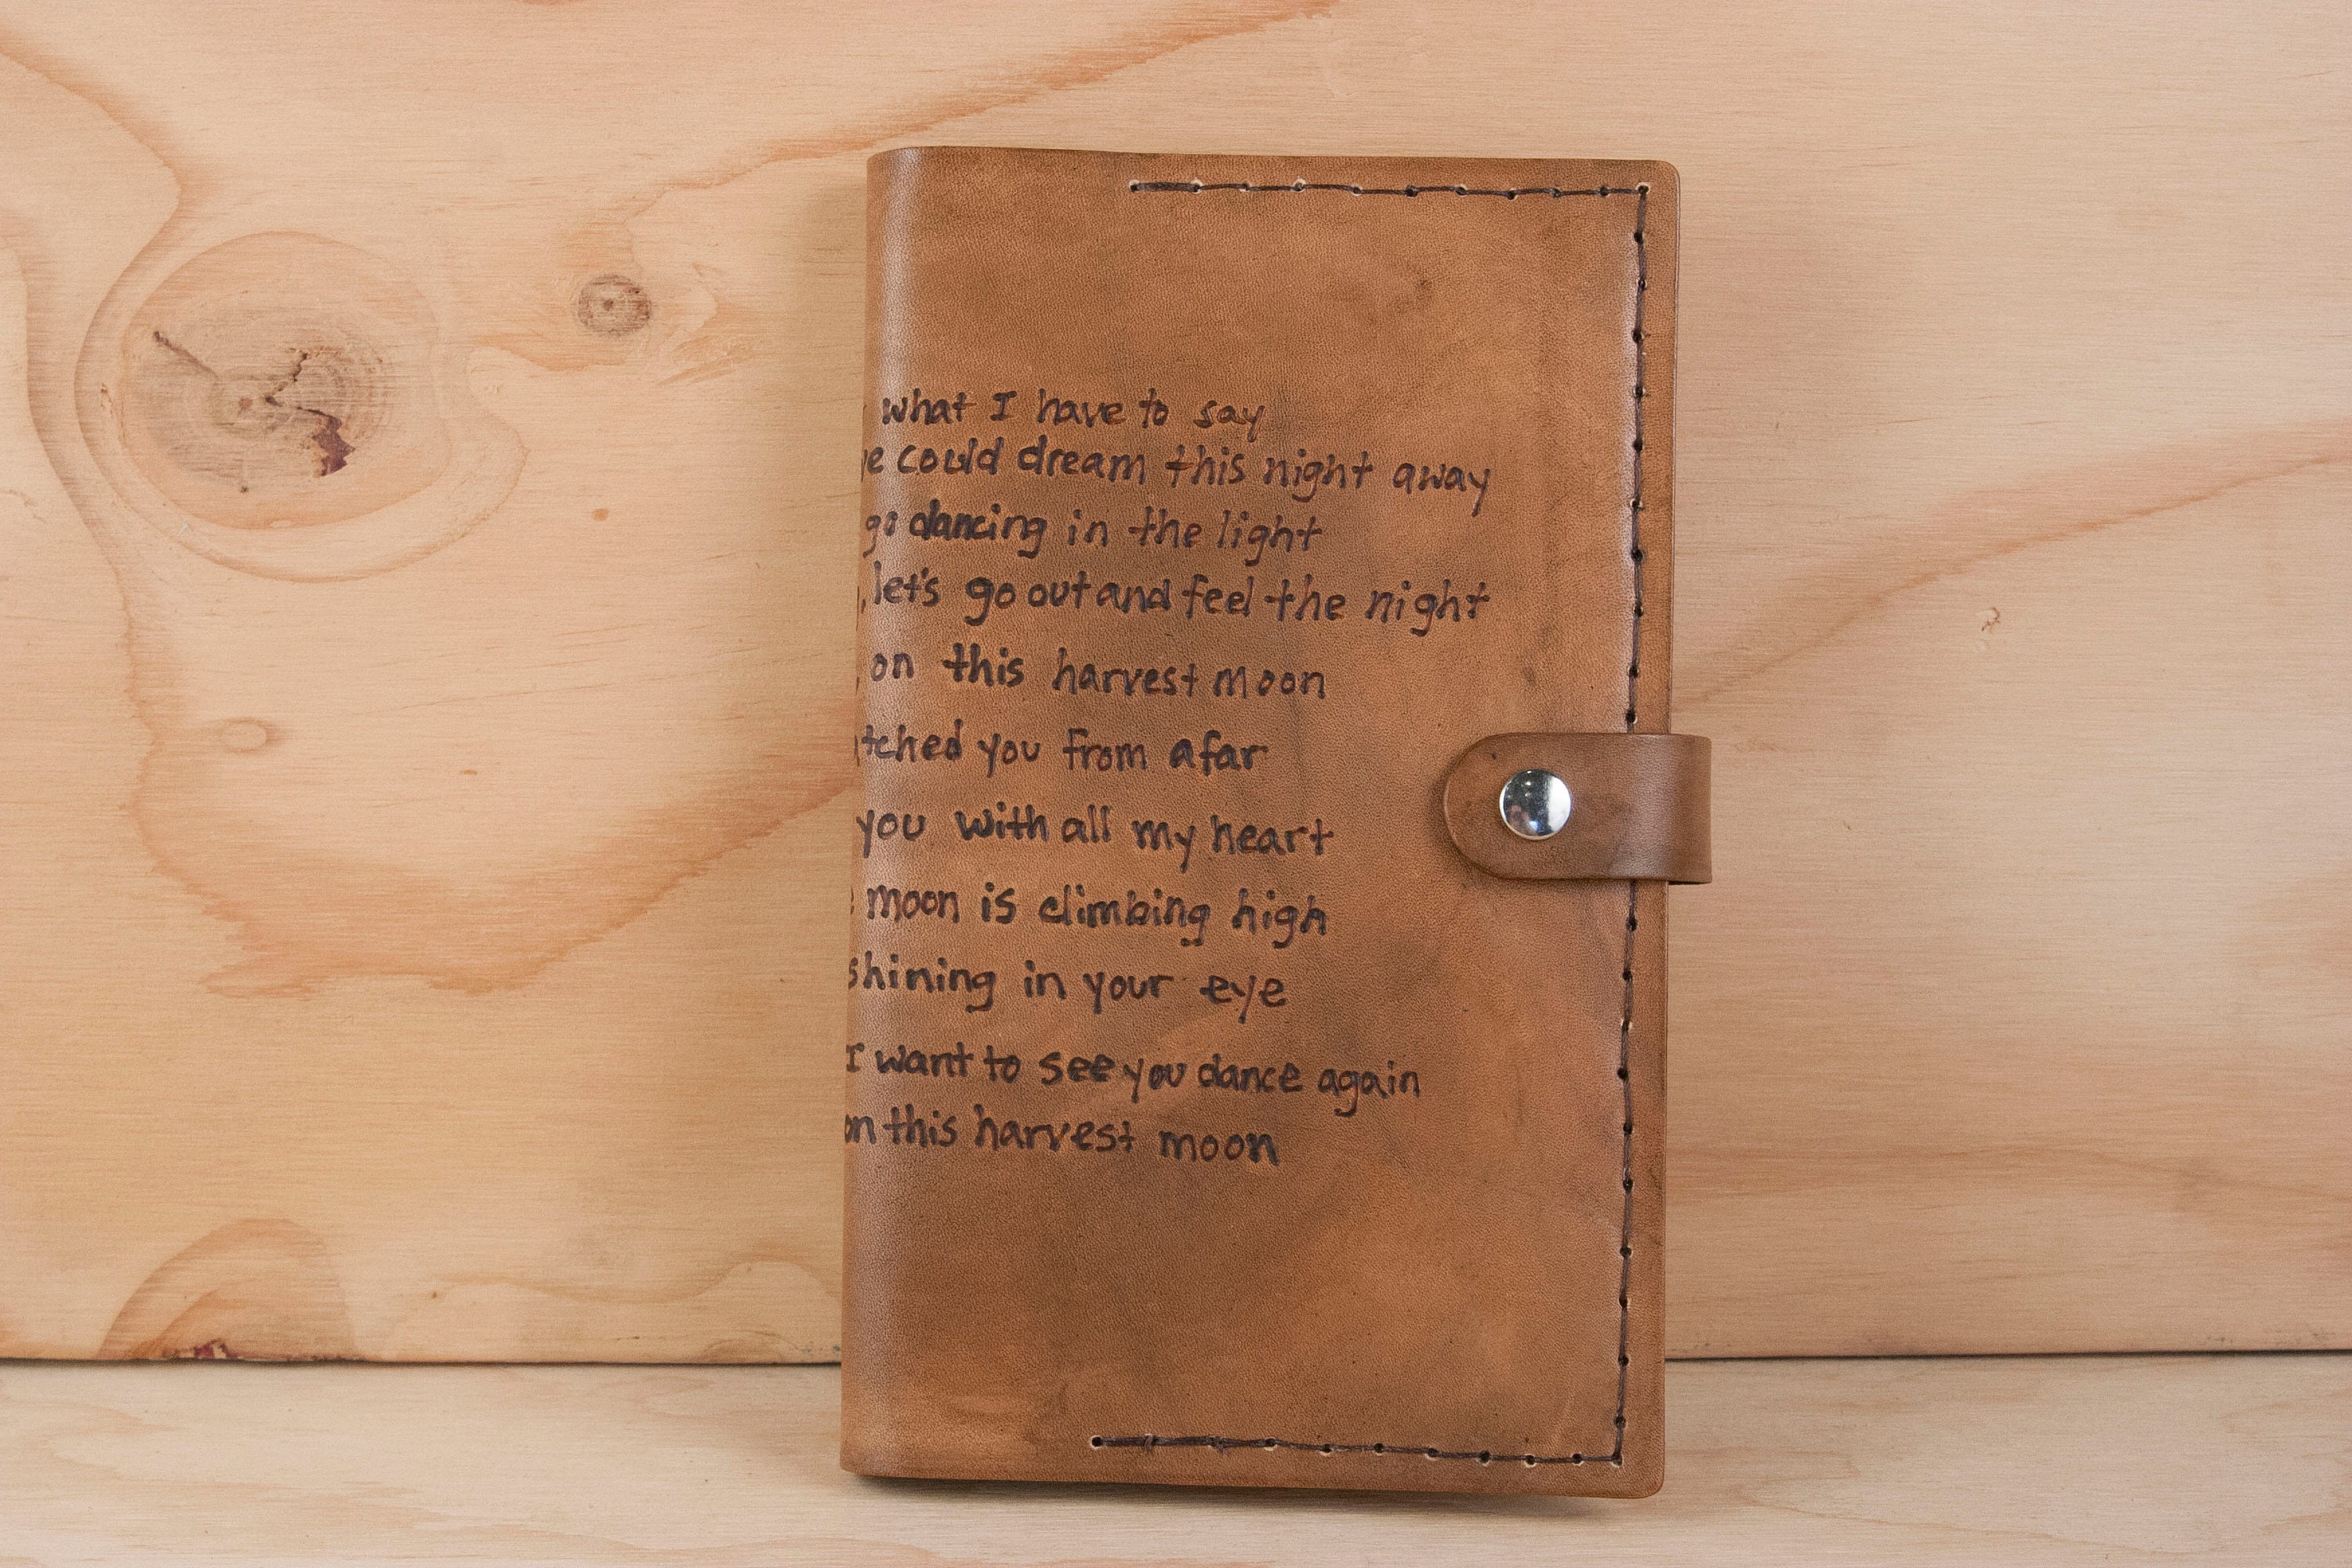 what I have to say
could dream this night away
go dancing in the light
, let's go out and feel the night
on this harvest moon
you from afar
you with all my heart
moon is climbing high
shining in your eye
I want to see you dance again
on this harvest moon